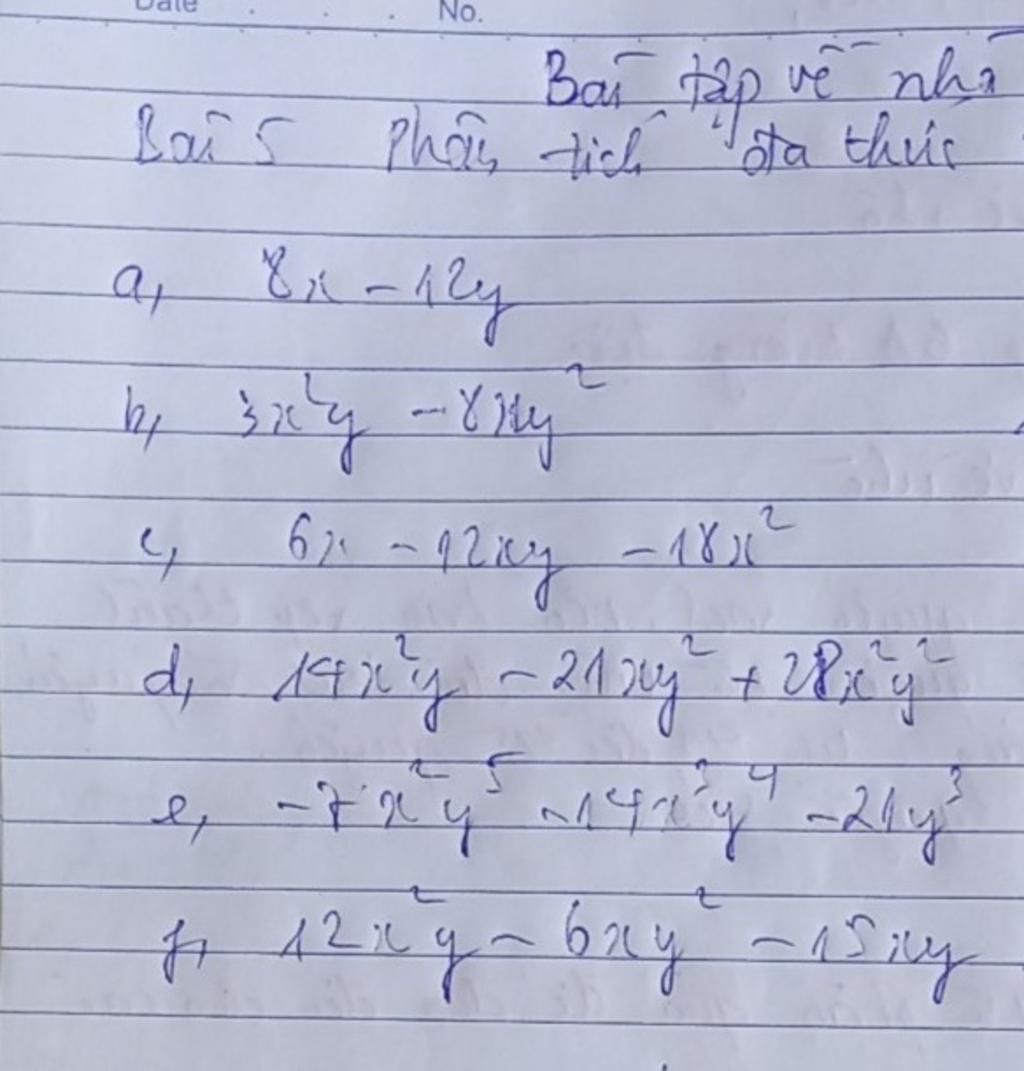 Date No.
Bài tập về nhà
Bài 5 Phân tích đa thức
a, 8x - 12y
b, 3x²y - 8xy²
c, 6x - 12xy - 18x²
d, 14x²y - 21xy² + 28x²y²
e, -7x²y⁵ - 14x³y⁴ - 21y³
f, 12x²y - 6xy² - 15xy